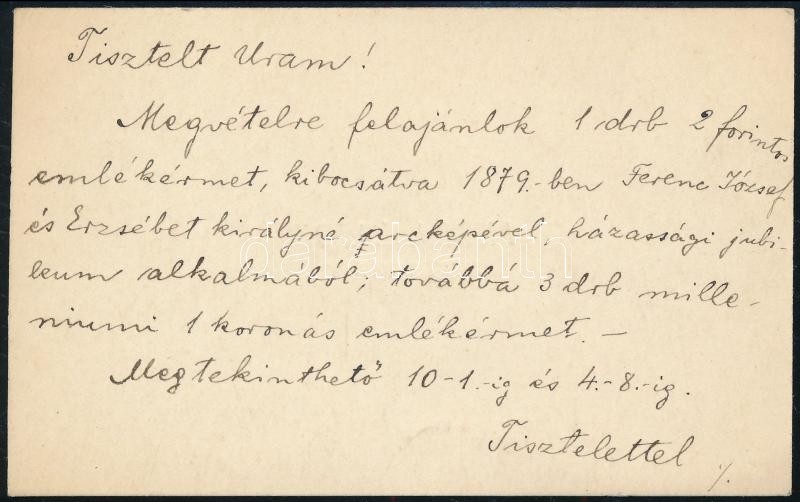 Tisztelt Uram!
Megvételre felajánlok 1 drb 2 forintos
emlékérmet, kibocsátva 1879.-ben Ferenc József
és Erzsébet királyné arcképével, házassági jubi-
leum alkalmából; továbbá 3 drb mille-
niumi 1 koronás emlékérmet. –
Megtekinthető 10-1.-ig és 4.-8.-ig.
Tisztelettel ./.
darabanth